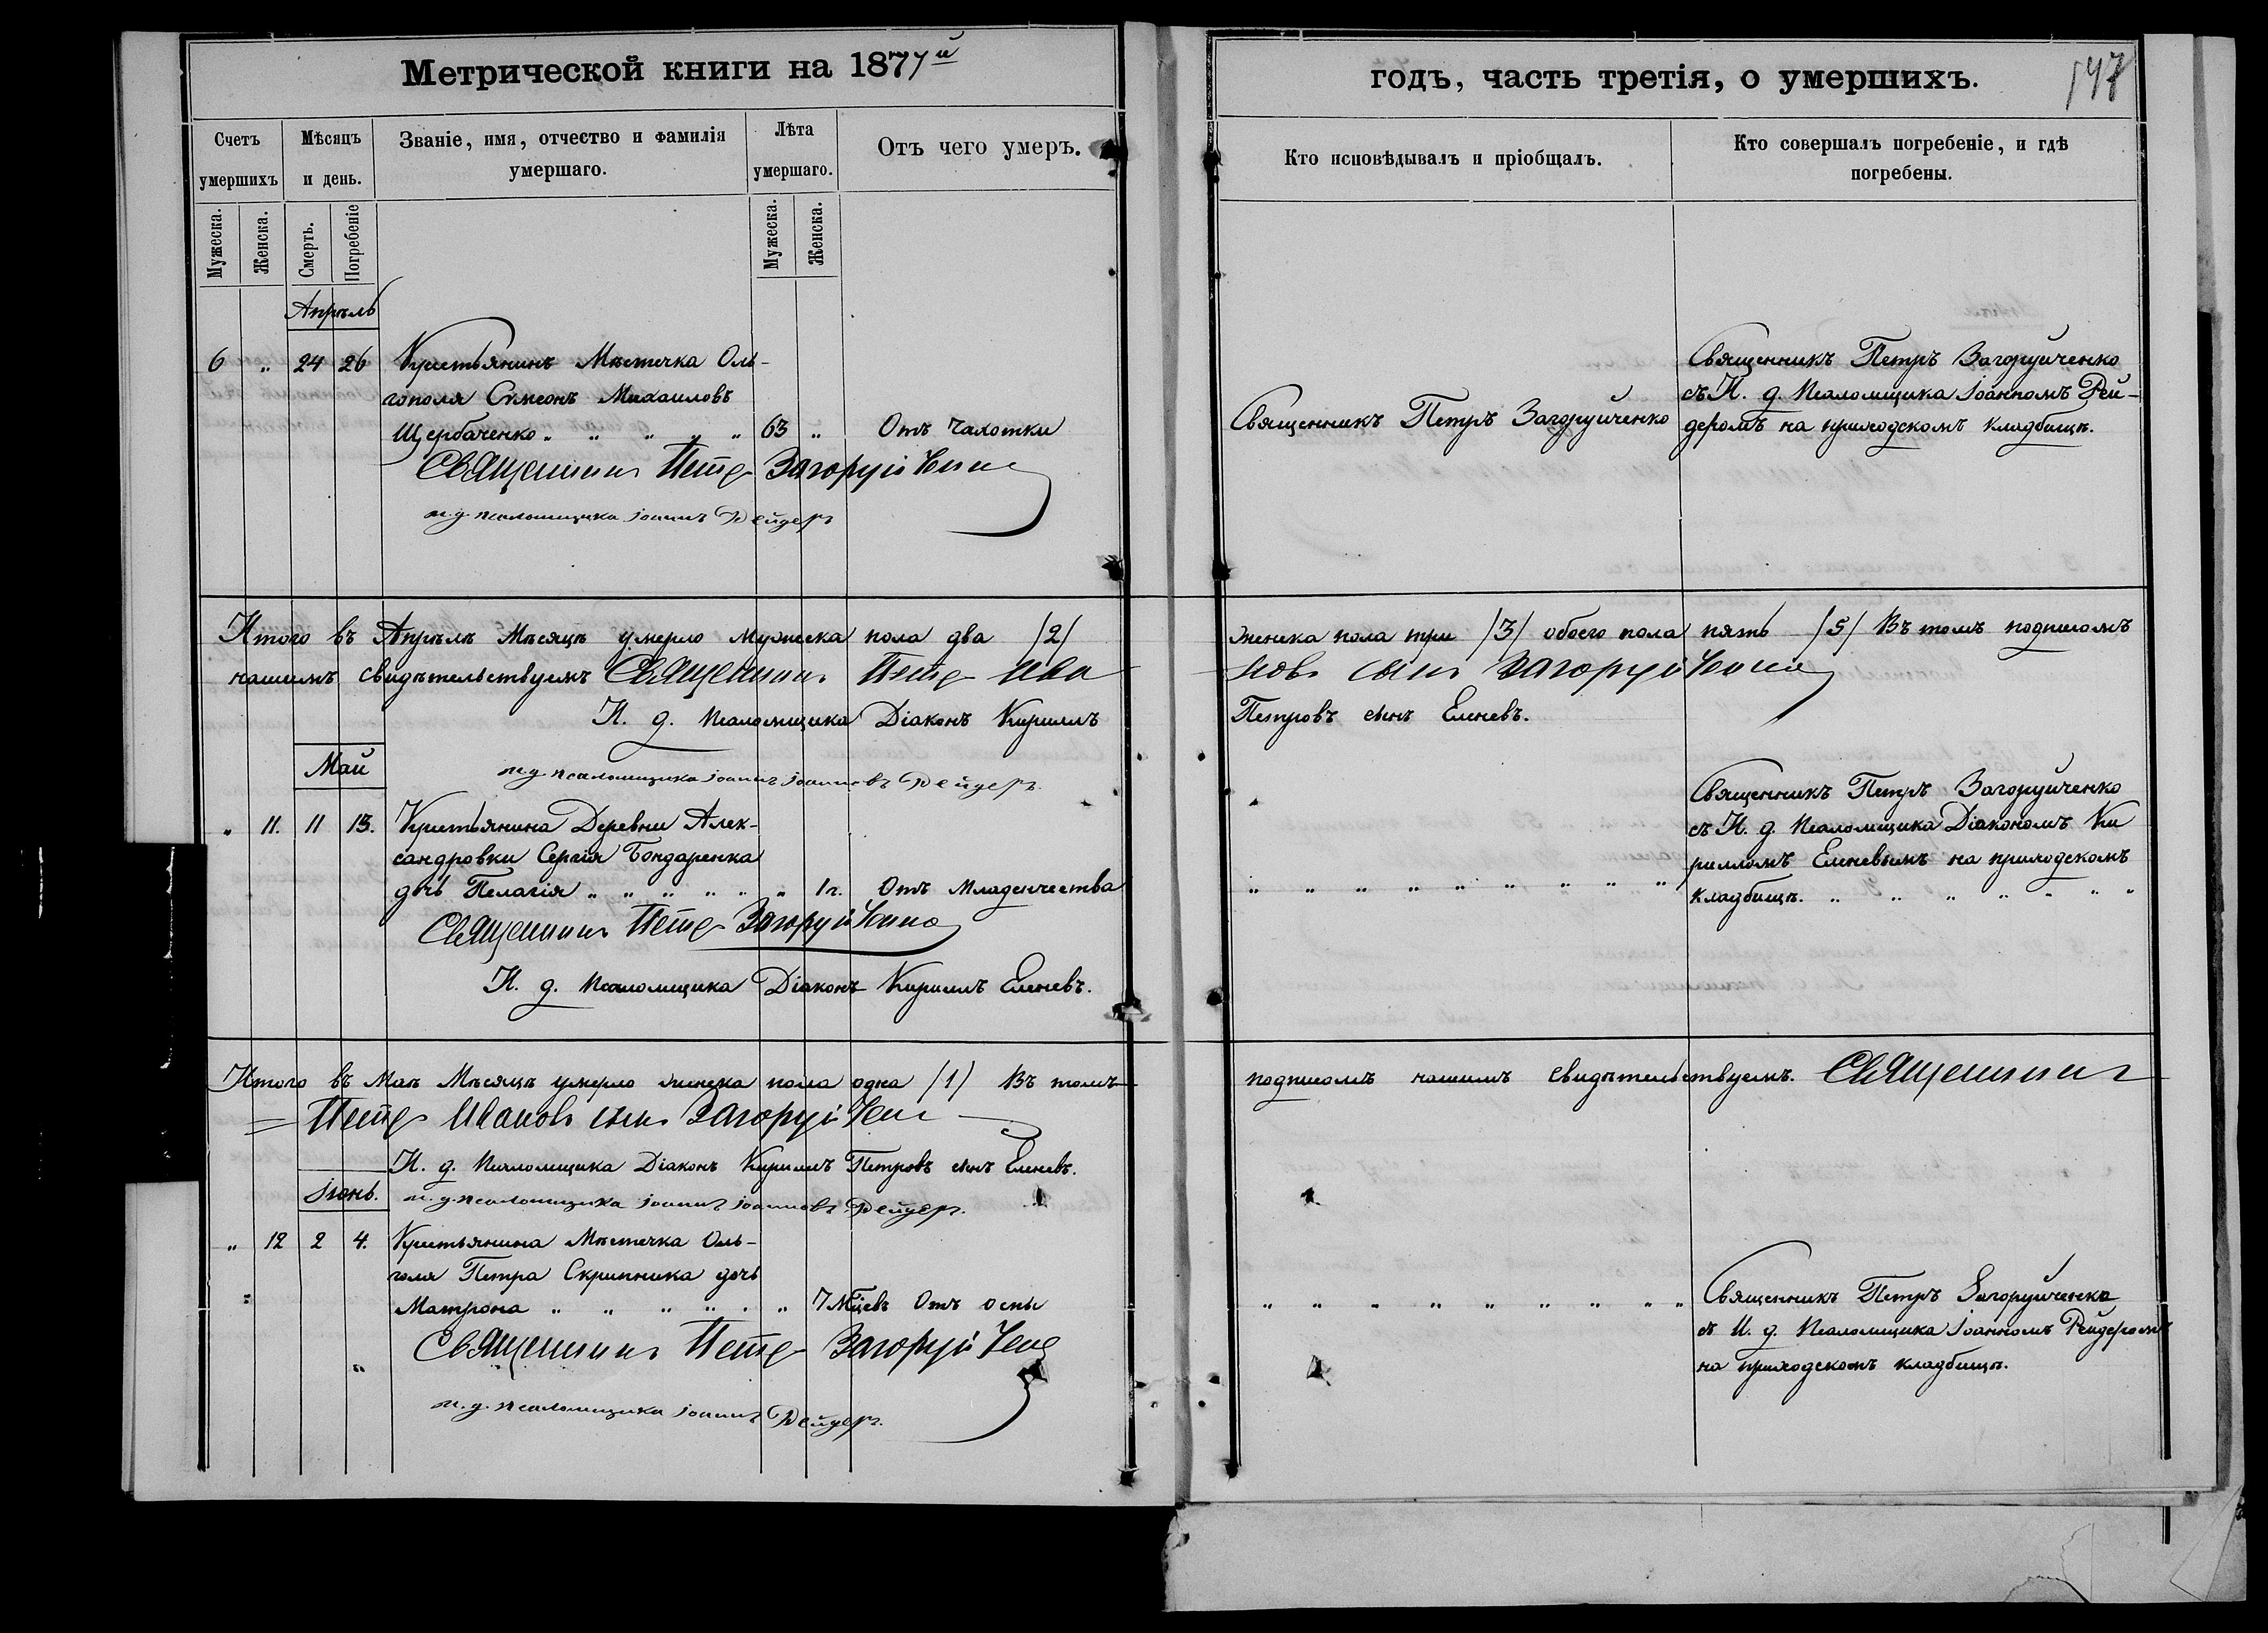 Метрической книги на 1877й
годъ, часть третія, о умершихъ.
147
Счетъ умершихъ
Мѣсяцъ и день.
Званіе, имя, отчество и фамилія умершаго.
Лѣта умершаго.
Отъ чего умеръ.
Кто исповѣдывалъ и пріобщалъ.
Кто совершалъ погребеніе, и гдѣ погребены.
Мужеска.
Женска.
Смерть.
Погребеніе
Мужеска.
Женска.
Апрѣль
6 " 24 26 Крестьянинъ Мѣстечка Оль-
гополя Симеонъ Михаиловъ
Щербаченко " " " " " 63 " Отъ чахотки
Священникъ Петръ Загоруйченко
Священникъ Петръ Загоруйченко
съ И. д. Псаломщика Іоанномъ Рей-
деромъ на приходскомъ кладбищѣ.
Священникъ Петръ Загоруйченко
и. д. псаломщика Іоаннъ Рейдеръ
Итого въ Апрѣлѣ Мѣсяцѣ умерло мужеска пола два /2/ женска пола три /3/ обоего пола пять /5/ Въ томъ подписомъ
нашимъ свидѣтельствуемъ Священникъ Петръ Ивановъ сынъ Загоруйченко
И. д. Псаломщика Діаконъ Кириллъ Петровъ сынъ Еленевъ.
и. д. псаломщика Іоаннъ Іоанновъ Рейдеръ.
Май
" 11. 11 13. Крестьянина Деревни Алек-
сандровки Сергія Бондаренка
дочь Пелагія " " " " " " 1 г. Отъ младенчества
" " " " " " " " "
Священникъ Петръ Загоруйченко
съ И. д. Псаломщика Діакономъ Ки
рилломъ Еленевымъ на приходскомъ
кладбищѣ. " " " " " "
Священникъ Петръ Загоруйченко
И. д. Псаломщика Діаконъ Кириллъ Еленевъ.
Итого въ Маѣ Мѣсяцѣ умерло женска пола одна /1/ Въ томъ подписомъ нашимъ свидѣтельствуемъ. Священникъ
Петръ Ивановъ сынъ Загоруйченко
И. д. Псаломщика Діаконъ Кириллъ Петровъ сынъ Еленевъ.
и. д. псаломщика Іоаннъ Іоанновъ Рейдеръ.
Іюнь.
" 12 2 4. Крестьянина Мѣстечка Оль-
голя Петра Скрипника дочь
Матрона " " " " " " 7 Мцевъ Отъ оспы
" " " " " " " " "
Священникъ Петръ Загоруйченко
съ И. д. Псаломщика Іоанномъ Рейдеромъ
на приходскомъ кладбищѣ.
Священникъ Петръ Загоруйченко
и. д. псаломщика Іоаннъ Рейдеръ.